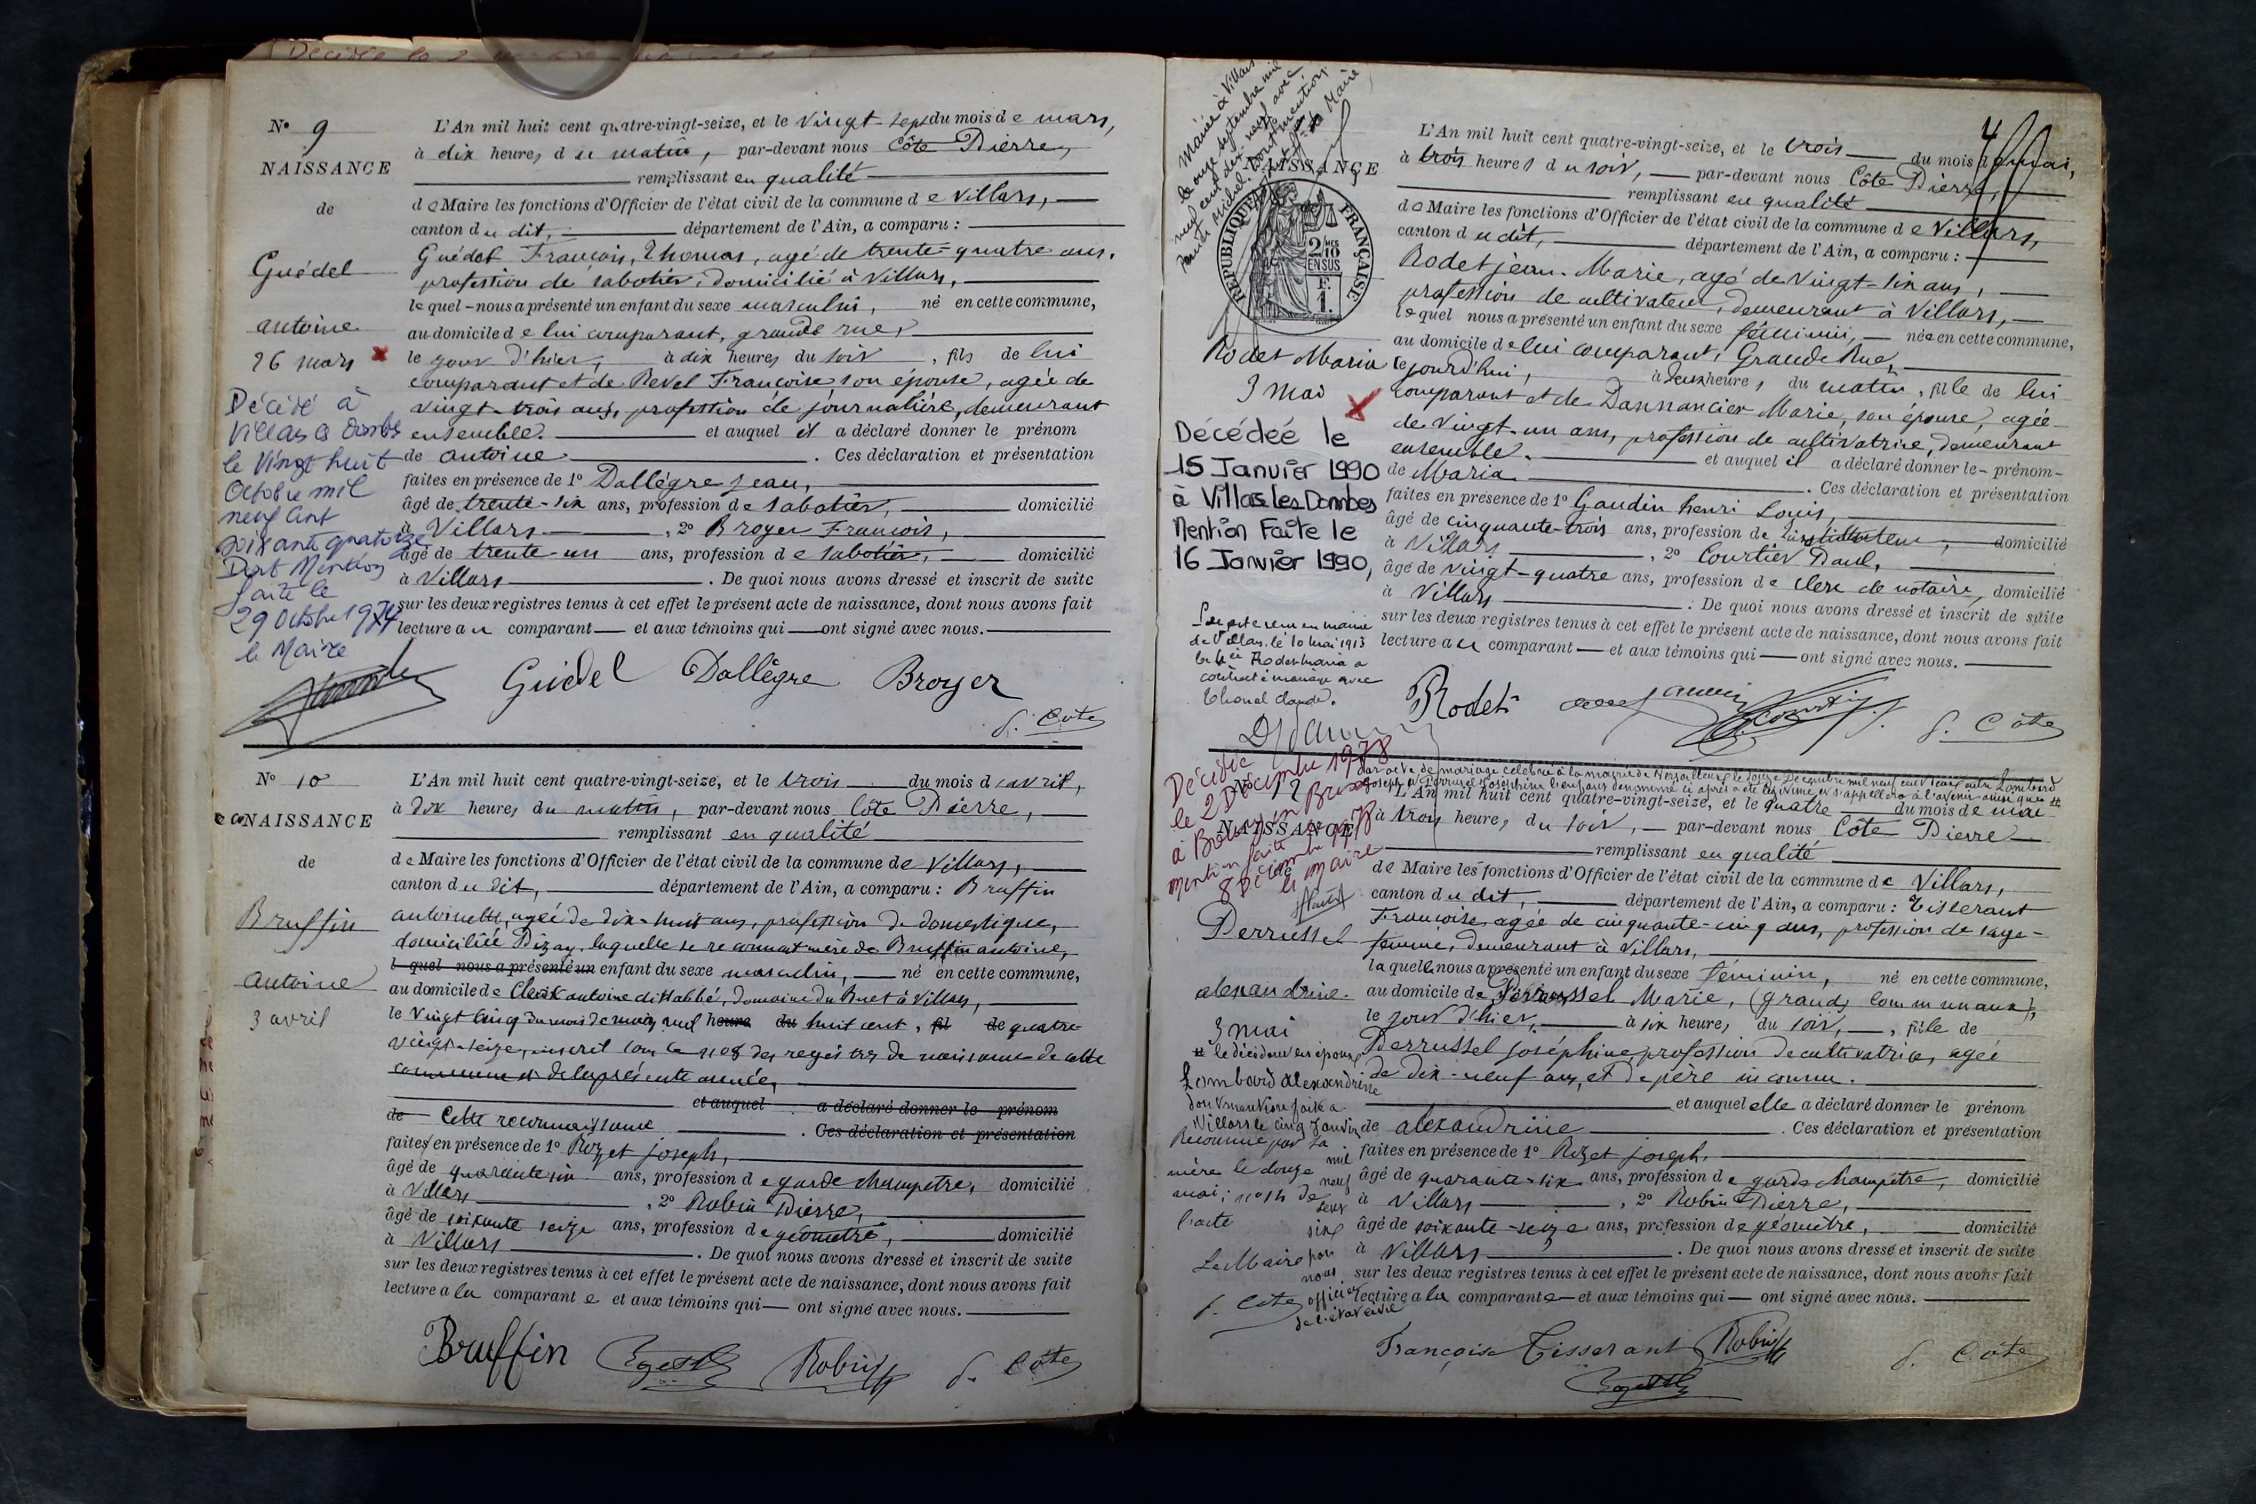 N° 9
NAISSANCE
de
Guédel
antoine
26 mars
Décédé à
Villars les Dombes
le Vingt huit
Octobre mil
neuf cent
soixante quatorze
Dont Mention
faite le
29 Octobre 1974
le Maire
L'An mil huit cent quatre-vingt-seize, et le vingt-sept du mois de mars,
à dix heures du matin, par-devant nous Côte Pierre,
remplissant en qualité
de Maire les fonctions d'Officier de l'état civil de la commune de Villars,
canton du dit, département de l'Ain, a comparu :
Guédel François, Thomas, agé de trente-quatre ans,
profession de sabotier, domicilié à Villars,
lequel nous a présenté un enfant du sexe masculin, né en cette commune,
au domicile de lui comparant, grande rue,
le jour d'hier, à dix heures du soir, fils de lui
comparant et de Revel Françoise son épouse, agée de
vingt-trois ans, profession de journalière, demeurant
ensemble. et auquel il a déclaré donner le prénom
de antoine. Ces déclaration et présentation
faites en présence de 1° Dallègre Jean,
âgé de trente-six ans, profession de sabotier, domicilié
à Villars, 2° Broyer François,
âgé de trente-un ans, profession de sabotier, domicilié
à Villars. De quoi nous avons dressé et inscrit de suite
sur les deux registres tenus à cet effet le présent acte de naissance, dont nous avons fait
lecture au comparant et aux témoins qui ont signé avec nous.
Guédel Dallègre Broyer
P. Côte
N° 10
NAISSANCE
de
Bruffin
antoine
3 avril
L'An mil huit cent quatre-vingt-seize, et le trois du mois d'avril,
à dix heures du matin, par-devant nous Côte Pierre,
remplissant en qualité
de Maire les fonctions d'Officier de l'état civil de la commune de Villars,
canton du dit, département de l'Ain, a comparu : Bruffin
antoinette, agée de dix-huit ans, profession de domestique,
domiciliée Dizay, laquelle se reconnait mère de Bruffin antoine,
lequel nous a présenté un enfant du sexe masculin, né en cette commune,
au domicile de antoine dit labbé, domaine du Buet à Villars,
le vingt cinq du mois de mars mil heure du huit cent, fil de quatre-
vingt-seize, inscrit sous le n° 8 des registres de naissance de cette
commune et de la présente année,
et auquel a déclaré donner le prénom
de Cette reconnaissance. Ces déclaration et présentation
faites en présence de 1° Rozet joseph,
âgé de quarante six ans, profession de garde champêtre, domicilié
à Villars, 2° Robin Pierre,
âgé de soixante seize ans, profession de géomètre, domicilié
à Villars. De quoi nous avons dressé et inscrit de suite
sur les deux registres tenus à cet effet le présent acte de naissance, dont nous avons fait
lecture a la comparante et aux témoins qui ont signé avec nous.
Bruffin Rozet Robin P. Côte
Mariée à Villars
le onze septembre mil
neuf cent dix-neuf avec
dont mention
Le Maire
NAISSANCE
RÉPUBLIQUE FRANÇAISE
2/10 EN SUS
F. 1.
Rodet Maria
3 mai
Décédée le
15 Janvier 1990
à Villars les Dombes
Mention Faite le
16 Janvier 1990,
de Villars le 10 mai 1913
Rodet Maria a
contracté mariage avec
Claude.
4
L'An mil huit cent quatre-vingt-seize, et le trois du mois de mai,
à trois heures du soir, par-devant nous Côte Pierre,
remplissant en qualité
de Maire les fonctions d'Officier de l'état civil de la commune de Villars,
canton du dit, département de l'Ain, a comparu :
Rodet jean-Marie, agé de vingt-six ans,
profession de cultivateur, demeurant à Villars,
lequel nous a présenté un enfant du sexe féminin, née en cette commune,
au domicile de lui comparant, Grande Rue,
le jourd'hui, à deux heures du matin, fille de lui
comparant et de Dannancier Marie, son épouse, agée
de vingt-un ans, profession de cultivatrice, demeurant
ensemble. et auquel il a déclaré donner le prénom
de Maria. Ces déclaration et présentation
faites en présence de 1° Gaudin henri Louis,
âgé de cinquante-trois ans, profession de instituteur, domicilié
à Villars, 2° Courtier Paul,
âgé de vingt-quatre ans, profession de clerc de notaire, domicilié
à Villars. De quoi nous avons dressé et inscrit de suite
sur les deux registres tenus à cet effet le présent acte de naissance, dont nous avons fait
lecture au comparant et aux témoins qui ont signé avec nous.
Rodet P. Côte
Décédée
le 2 Décembre 1978
à Bourg en Bresse
Mention faite le
8 Décembre 1978
le Maire
N° 12
NAISSANCE
Perrussel
alexandrine.
3 mai
# le dessous en épouse
Lombard alexandrine
dont mention faite a
Villars le cinq Janvier
mil neuf cent six
par nous officier
de l'état civil
Reconnue par sa
mère le douze
mai, n° 14 de
l'acte
Le Maire
P. Côte
par acte de mariage célébré à la mairie de le douze Décembre mil neuf cent entre Lombard
Joseph et Perrussel Joséphine l'enfant dénommé ci après a été légitimé et s'appellera à l'avenir ainsi que #
L'An mil huit cent quatre-vingt-seize, et le quatre du mois de mai
à trois heures du soir, par-devant nous Côte Pierre
remplissant en qualité
de Maire les fonctions d'Officier de l'état civil de la commune de Villars,
canton du dit, département de l'Ain, a comparu : Tisserant
Françoise, agée de cinquante-cinq ans, profession de sage-
femme, demeurant à Villars,
laquelle nous a présenté un enfant du sexe féminin, né en cette commune,
au domicile de Perrussel Marie, (grands communaux),
le jour d'hier, à six heures du soir, fille de
Perrussel Joséphine, profession de cultivatrice, agée
de dix-neuf ans, et de père inconnu.
et auquel elle a déclaré donner le prénom
de alexandrine. Ces déclaration et présentation
faites en présence de 1° Rozet joseph.
âgé de quarante-six ans, profession de garde champêtre, domicilié
à Villars, 2° Robin Pierre,
âgé de soixante-seize ans, profession de géomètre, domicilié
à Villars. De quoi nous avons dressé et inscrit de suite
sur les deux registres tenus à cet effet le présent acte de naissance, dont nous avons fait
lecture a la comparante et aux témoins qui ont signé avec nous.
Françoise Tisserant Robin P. Côte
Rozet